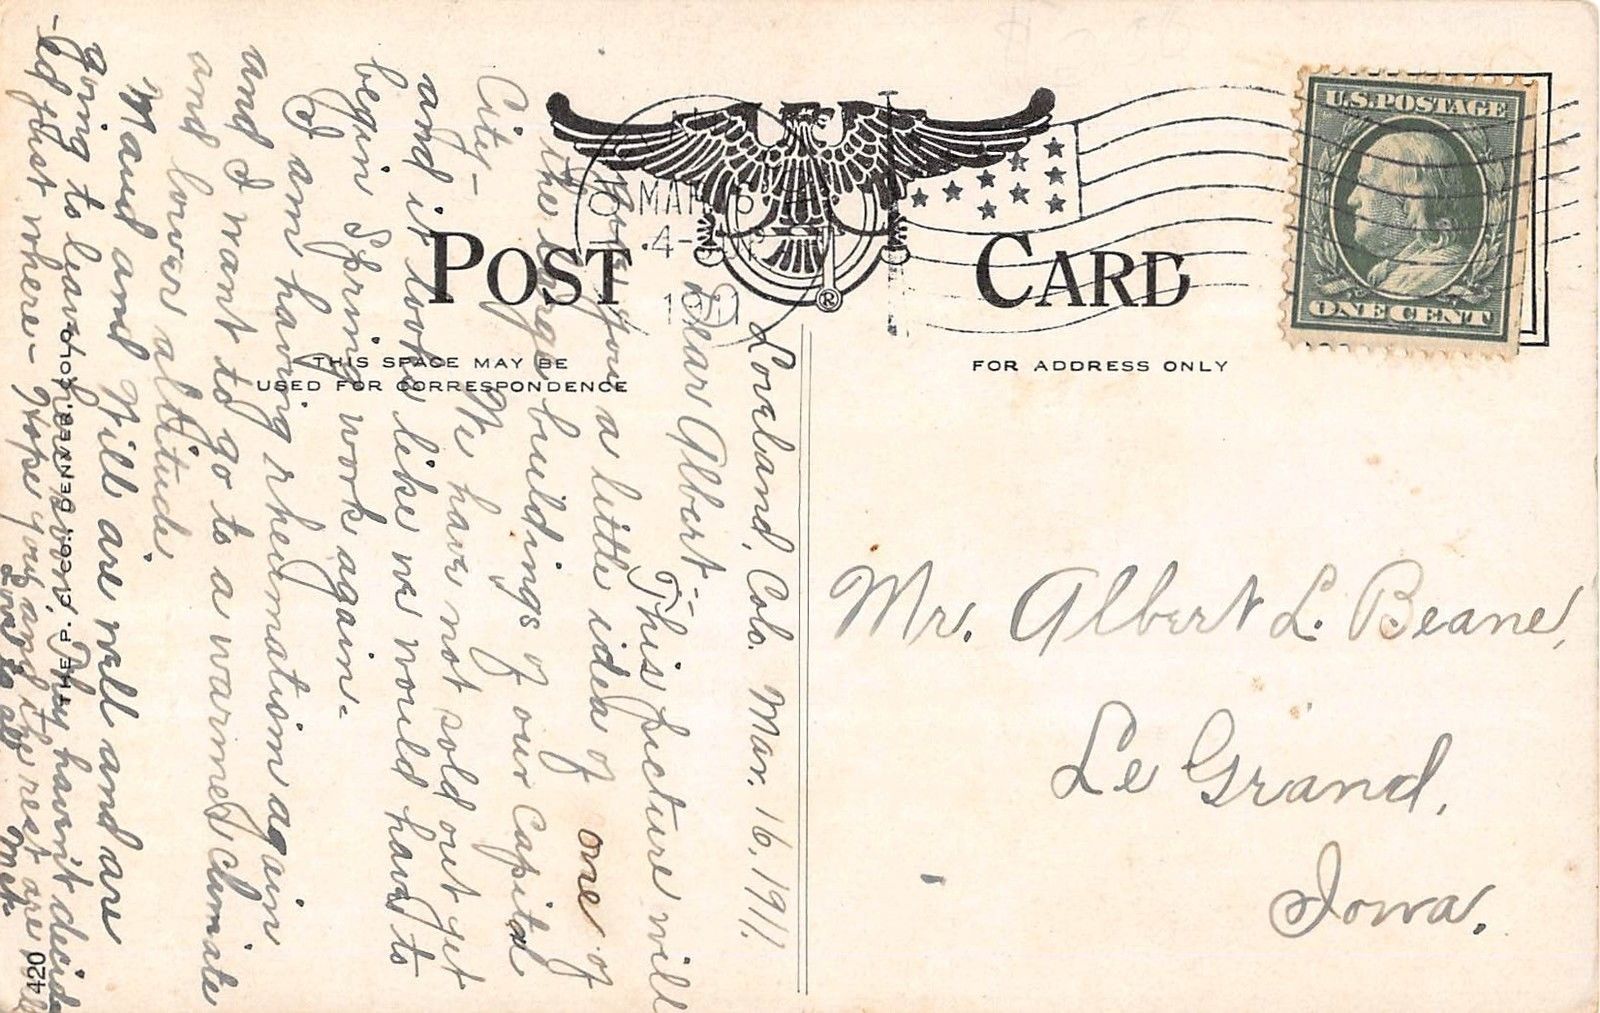 POST CARD
THIS SPACE MAY BE
USED FOR CORRESPONDENCE
FOR ADDRESS ONLY
U.S. POSTAGE
ONE CENT
MAR 16
4-
1911
®
Loveland, Colo. Mar. 16, 1911.
Dear Albert:-
This picture will
give you a little idea of one of
the large buildings of our Capitol
City- We have not sold out yet
and it looks like we would have to
begin Spring work again-
I am having rheumatism again
and I want to go to a warmer climate
and lower altitude.
Maud and Will are well and are
going to leave here soon. They havn't decid
-ed just where- Hope you and the rest are well
Love to all
THE P. C. CO., DENVER, COLO.
420
Mr. Albert L. Beane,
Le Grand,
Iowa.